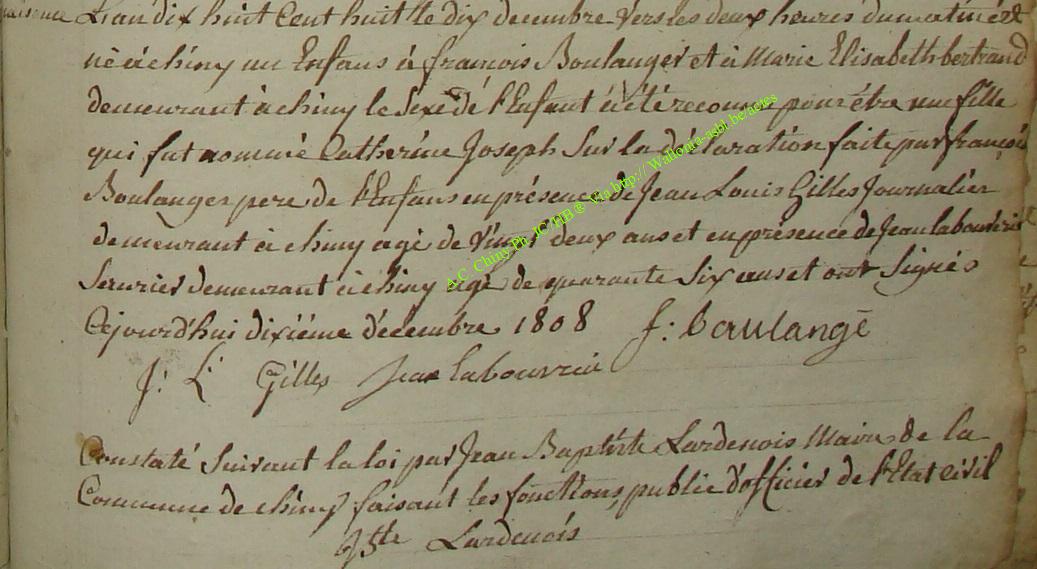 naissance L'an dix huit Cent huit le dix decembre vers les deux heures du matin est
né à chiny un Enfans à francois Boulanger et à Marie Elisabeth bertrand
demeurant à chiny le Sexe de l'Enfant à été reconu pour être une fille
qui fut nommé Catherine Joseph Sur la déclaration faite par françois
Boulanger pere de l'Enfans en présence de Jean Louis Gilles Journalier
demeurant à chiny agé de Vingt deux ans et en présence de Jean labouverie
Serurier demeurant à chiny agé de quarante Six ans et ont Signés
Cejourd'hui dixiéme décembre 1808 f: boulangé
J: L Gilles Jean labouverie
Constaté Suivant la loi par Jean Baptiste Lardenois Maire de la
Commune de chiny faisant les fonctions public d'officier de l'Etat Civil
Bste Lardenois
A.C. Chiny Ph. JC HB® Via http://Wallonia-asbl.be/actes